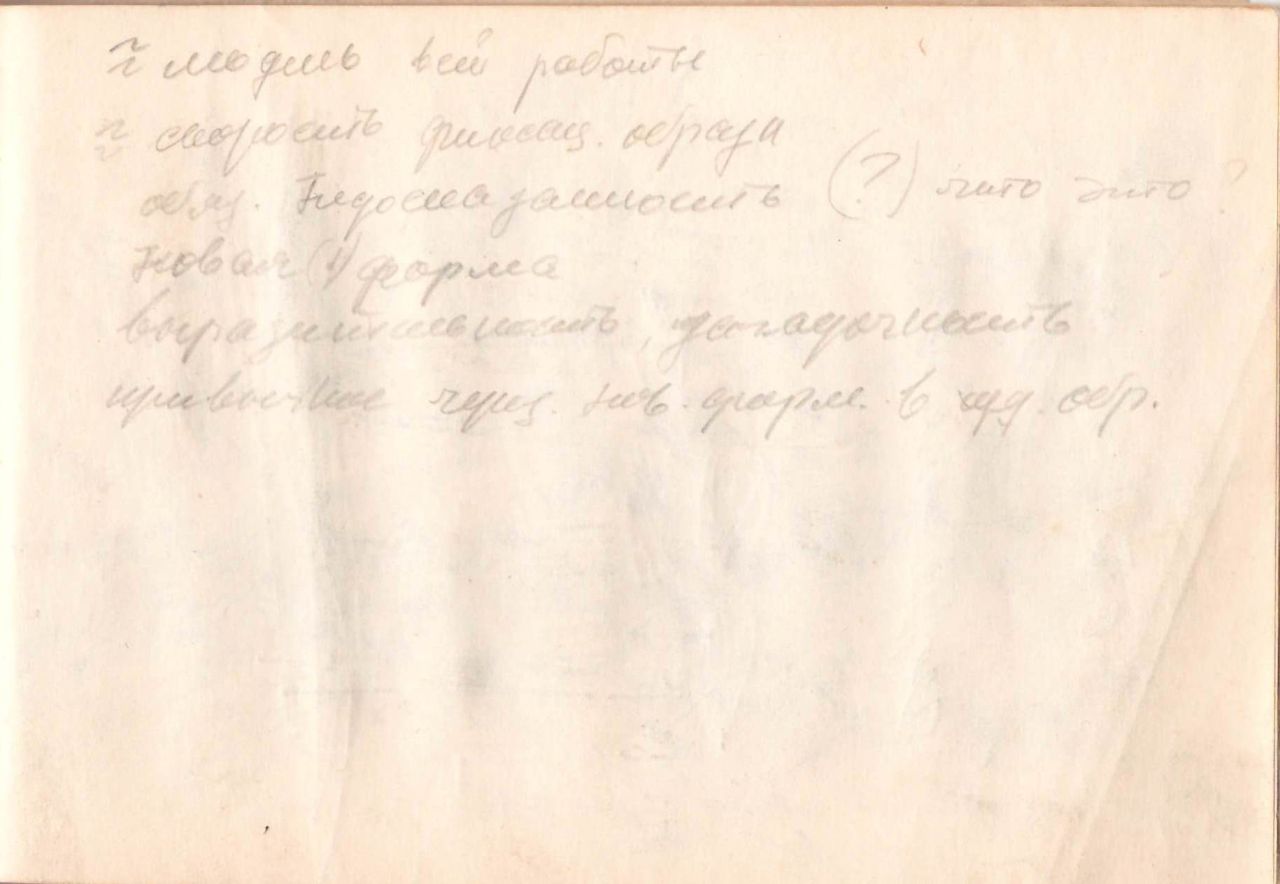 ≈ модель всей работы
≈ скорость фиксац. образа
обяз. Недосказанность (?) что это?
Новая (!) форма
выразительность, загадочность
привычное через нов. форм. в худ. обр.